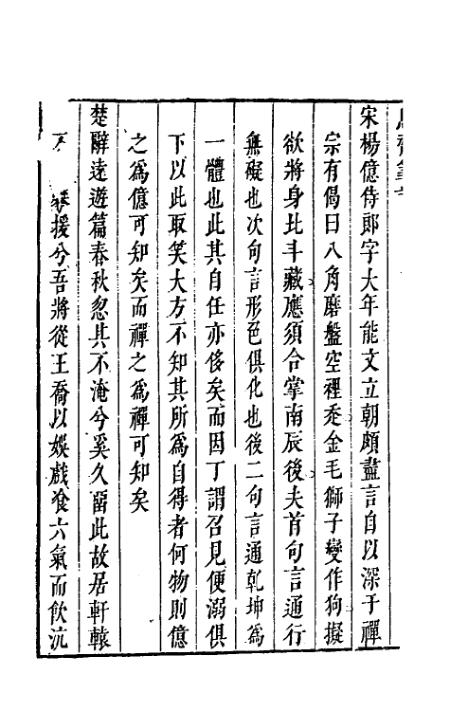 宋楊億侍郎字大年能文立朝頗盡言自以深于禪
宗有偈曰八角磨盤空裡走金毛獅子變作狗擬
欲將身北斗藏應須合掌南辰後夫首句言通行
無礙也次句言形色俱化也後二句言通乾坤為
一體也此其自任亦侈矣而因丁謂召見便溺俱
下以此取笑大方不知其所為自得者何物則億
之為億可知矣而禪之為禪可知矣
楚辭遠遊篇春秋忽其不淹兮奚久留此故居軒轅
不 攀援兮吾將從王喬以娛戲飡六氣而飲沆